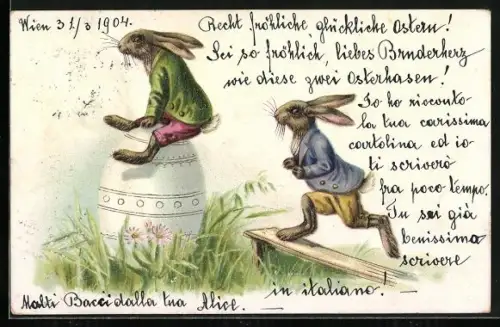 Wien 31/3 1904.
Recht fröhliche, glückliche Ostern!
Sei so fröhlich, liebes Bruderherz
wie diese zwei Osterhasen!
Io ho riceonto
la tua carissima
cartolina ed io
ti scriverò
fra poco tempo.
Tu sei già
benissimo
scrivere
in italiano! —
Molti Bacci dalla tua Alice. —